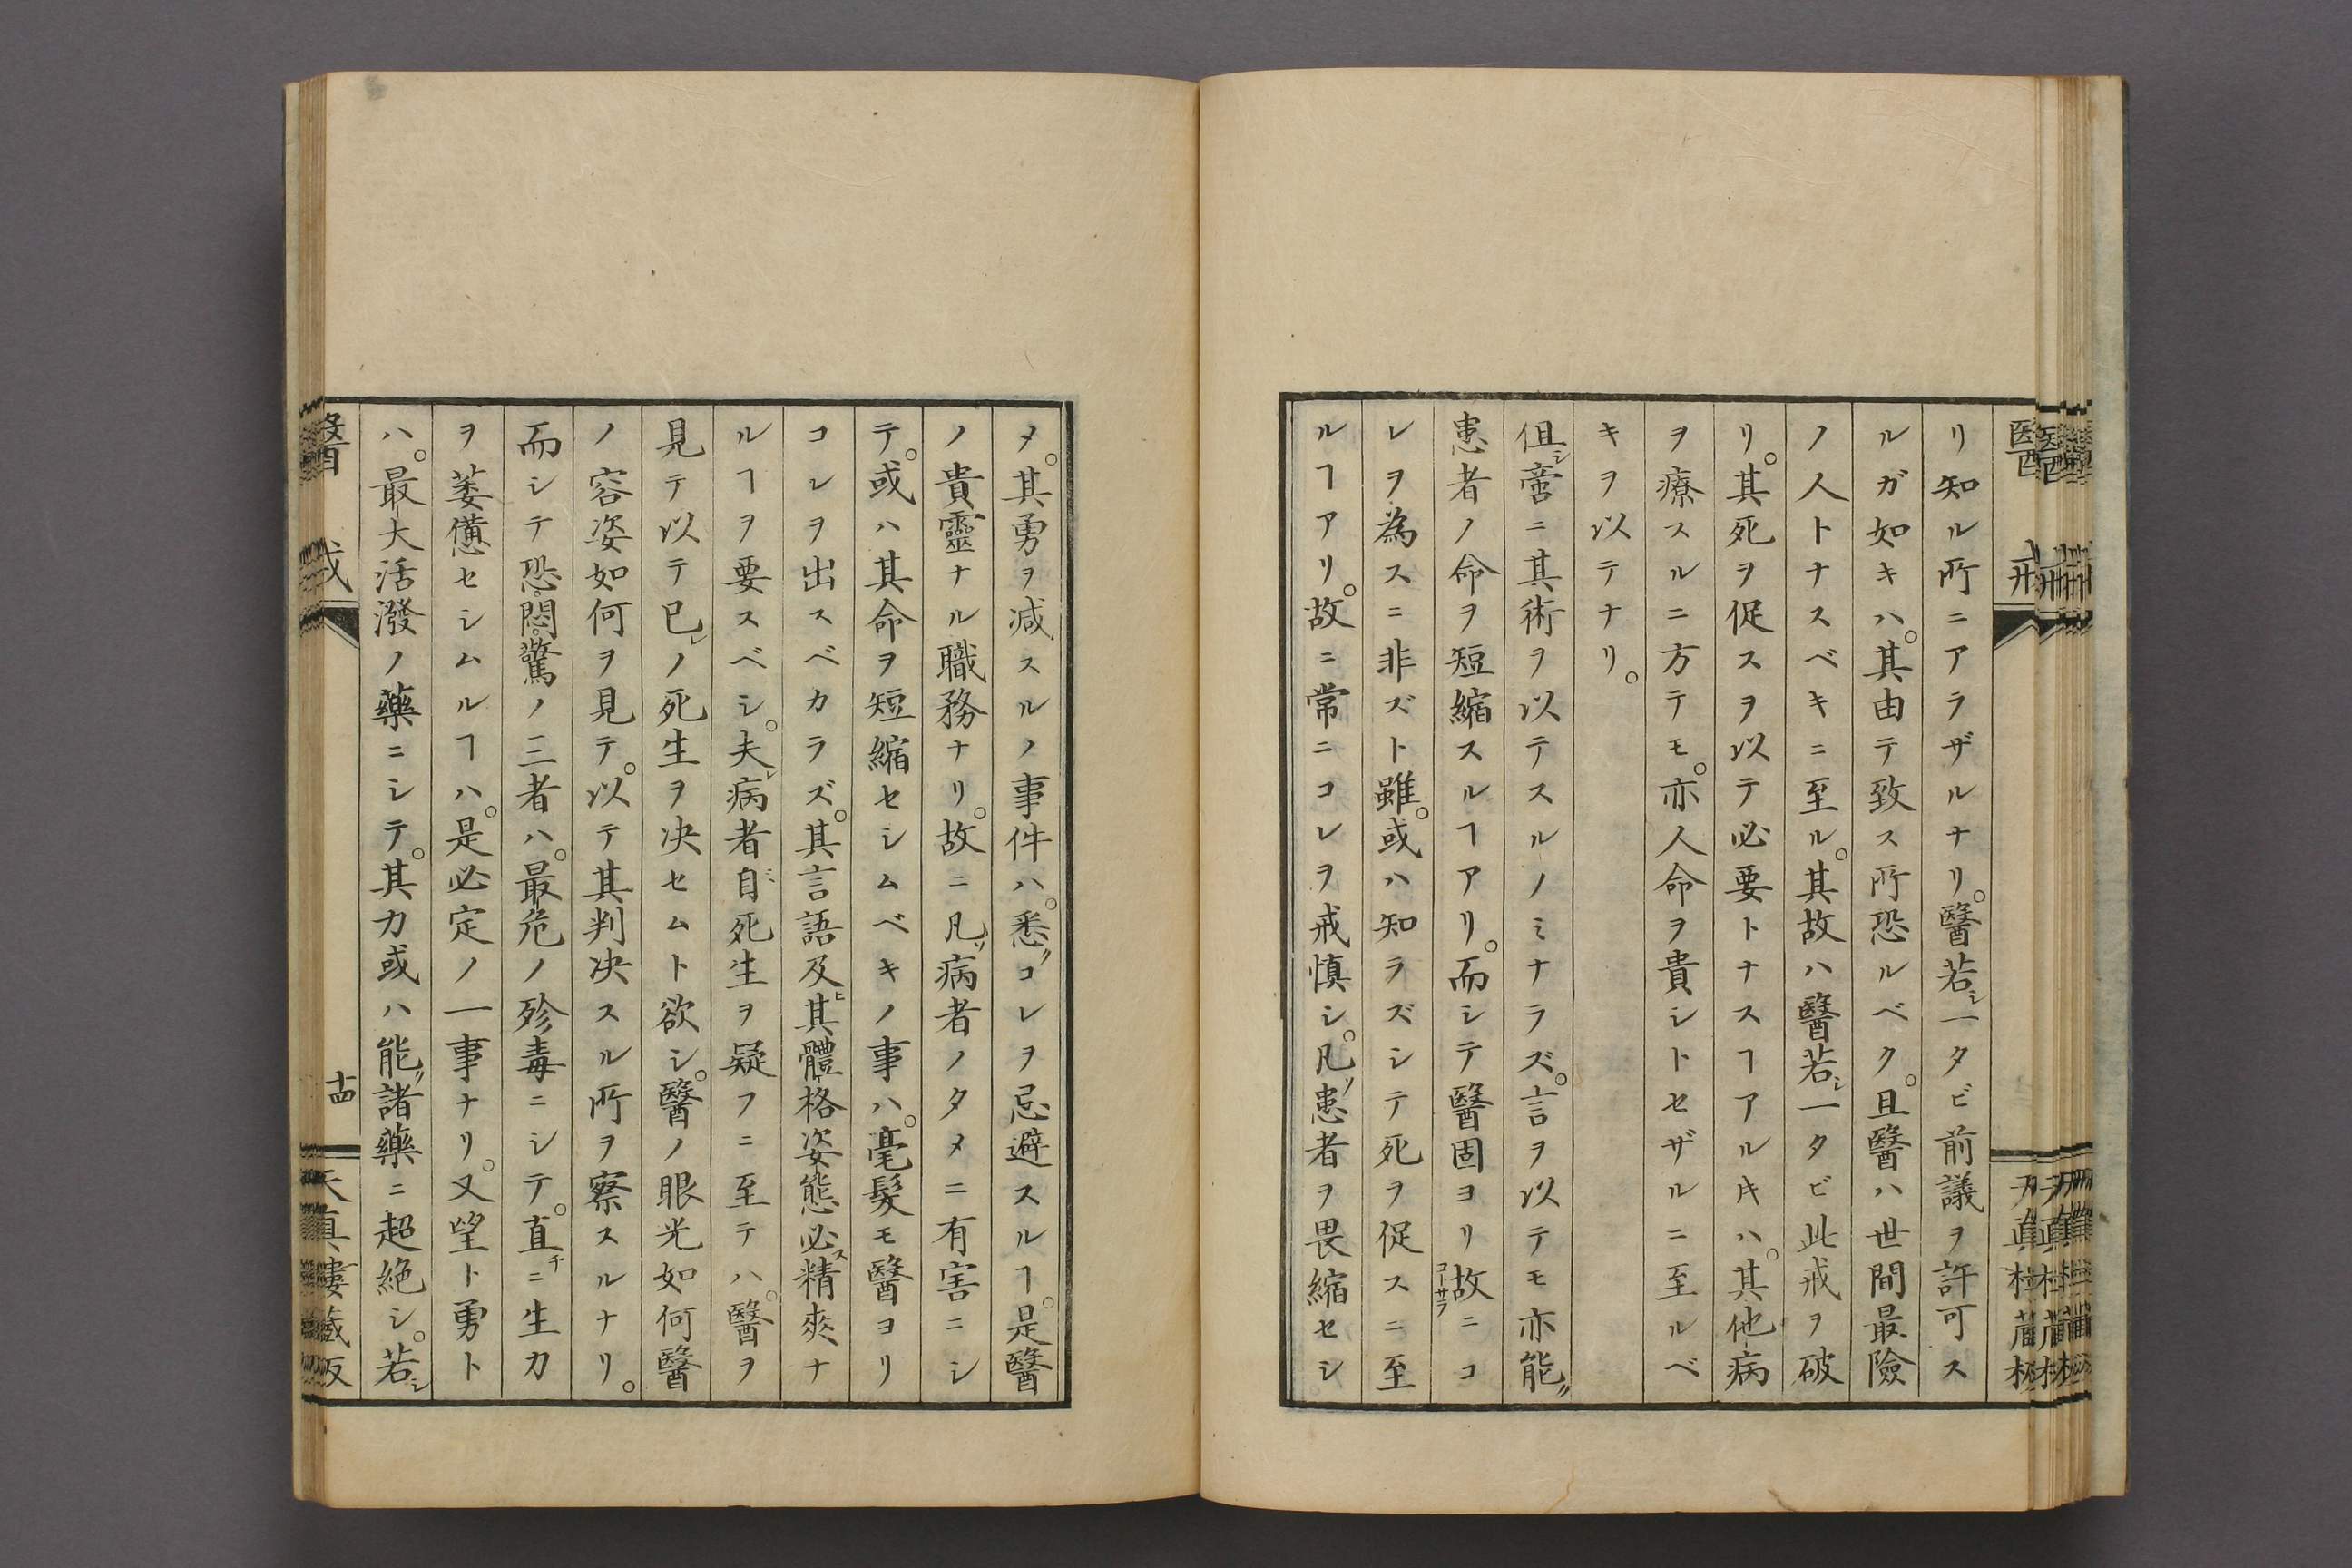 リ知ル所ニアラザルナリ。醫若シ一タビ前議ヲ許可ス
ルガ如キハ。其由テ致ス所恐ルベク。且醫ハ世間最險
ノ人トナスベキニ至ル。其故ハ醫若シ一タビ此戒ヲ破
リ。其死ヲ促スヲ以テ必要トナスヿアルキハ。其他病
ヲ療スルニ方テモ。亦人命ヲ貴シトセザルニ至ルベ
キヲ以テナリ。
伹シ啻ニ其術ヲ以テスルノミナラズ。言ヲ以テモ亦能ク
患者ノ命ヲ短縮スルヿアリ。而シテ醫固ヨリ故コトサラニコ
レヲ為スニ非ズト雖。或ハ知ラズシテ死ヲ促スニ至
ルヿアリ。故ニ常ニコレヲ戒慎シ。凡ソ患者ヲ畏縮セシ
メ。其勇ヲ減スルノ事件ハ。悉クコレヲ忌避スルヿ。是醫
ノ貴靈ナル職務ナリ。故ニ凡ソ病者ノタメニ有害ニシ
テ。或ハ其命ヲ短縮セシムベキノ事ハ。毫髮モ醫ヨリ
コレヲ出スベカラズ。其言語及ヒ其體格姿態必ス精爽ナ
ルヿヲ要スベシ。夫レ病者自ミ死生ヲ疑フニ至テハ。醫ヲ
見テ以テ已レノ死生ヲ决セムト欲シ。醫ノ眼光如何醫
ノ容姿如何ヲ見テ。以テ其判决スル所ヲ察スルナリ。
而シテ恐。悶。驚ノ三者ハ。最危ノ殄毒ニシテ。直チニ生力
ヲ萎憊セシムルヿハ。是必定ノ一事ナリ。又望ト勇ト
ハ。最大活潑ノ藥ニシテ。其力或ハ能ク諸藥ニ超絶シ。若シ
醫戒
十四
天真樓藏版